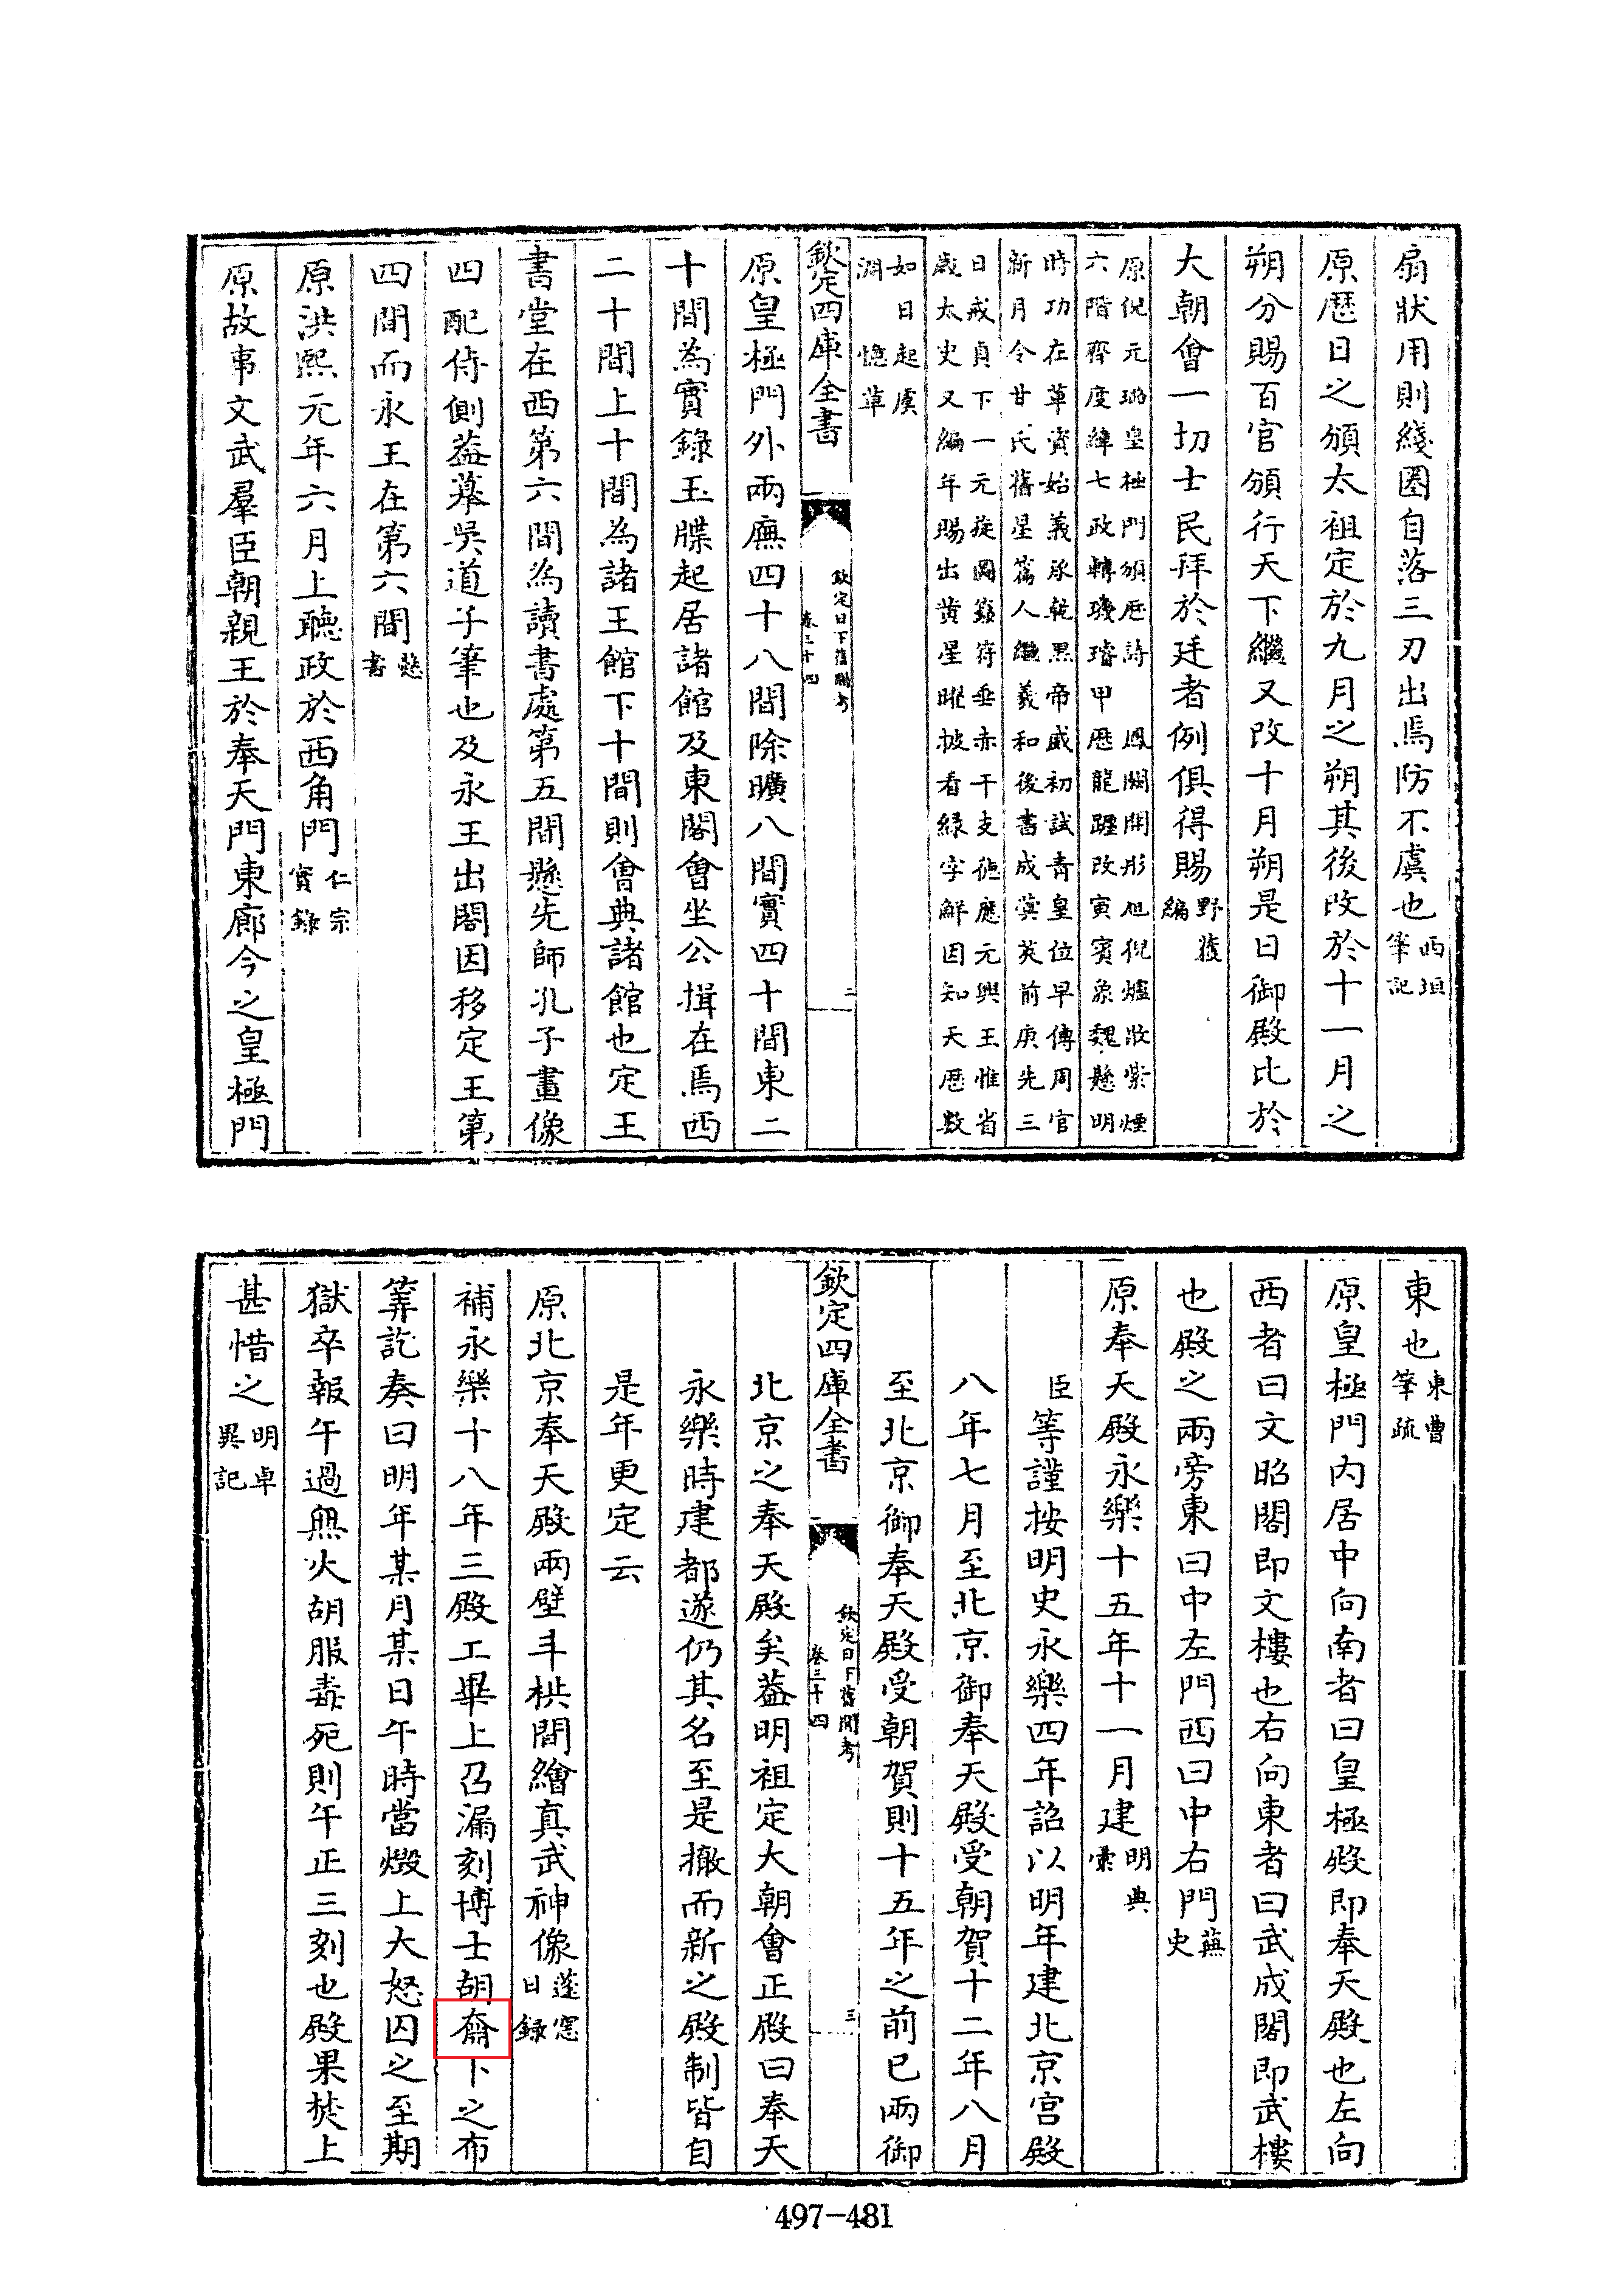 扇狀用則綫圏自落三刃出焉防不虞也西垣
筆記
原歴日之頒太祖定於九月之朔其後改於十一月之
朔分賜百官頒行天下繼又改十月朔是日御殿比於
大朝會一切士民拜於廷者例俱得賜野獲
編
原倪元璐皇極門頒歴詩　鳳闕開彤旭猊爐散紫煙
六階齊度緯七政轉璣璿甲歴龍躔改寅賓象魏懸明
時功在革資始義承乾黑帝威初試青皇位早傳周官
新月令甘氏舊星篇人繼羲和後書成蓂莢前庚先三
日戒貞下一元旋圖籙符垂赤干支德應元興王惟省
歲太史又編年賜出黄星曜披看緑字鮮因知天歴數
如日起虞
淵　憶草
欽定四庫全書
欽定日下舊聞考
卷三十四
二
原皇極門外兩廡四十八間除曠八間實四十間東二
十間為實錄玉牒起居諸館及東閣會坐公揖在焉西
二十間上十間為諸王館下十間則會典諸館也定王
書堂在西第六間為讀書處第五間懸先師孔子畫像
四配侍側葢摹吳道子筆也及永王出閣因移定王第
四間而永王在第六間慤
書
原洪熙元年六月上聽政於西角門仁宗
實錄
原故事文武羣臣朝親王於奉天門東廊今之皇極門
東也東曹
筆疏
原皇極門内居中向南者曰皇極殿即奉天殿也左向
西者曰文昭閣即文樓也右向東者曰武成閣即武樓
也殿之兩旁東曰中左門西曰中右門蕪
史
原奉天殿永樂十五年十一月建明典
彚
臣等謹按明史永樂四年詔以明年建北京宫殿
八年七月至北京御奉天殿受朝賀十二年八月
至北京御奉天殿受朝賀則十五年之前已兩御
欽定四庫全書
欽定日下舊聞考
卷三十四
三
北京之奉天殿矣葢明祖定大朝會正殿曰奉天
永樂時建都遂仍其名至是撤而新之殿制皆自
是年更定云
原北京奉天殿兩壁斗栱間繪真武神像蓬窓
日録
補永樂十八年三殿工畢上召漏刻博士胡奫卜之布
筭訖奏曰明年某月某日午時當燬上大怒囚之至期
獄卒報午過無火胡服毒死則午正三刻也殿果焚上
甚惜之明卓
異記
497-481